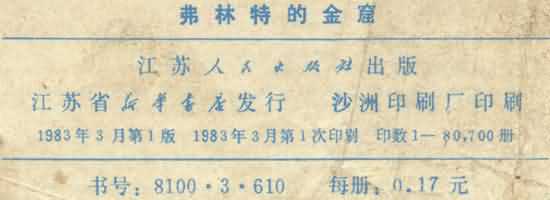 弗林特的金窟
江苏人民出版社出版
江苏省新华书店发行 沙洲印刷厂印刷
1983年3月第1版 1983年3月第1次印刷 印数1—80,700册
书号：8100·3·610 每册：0.17元